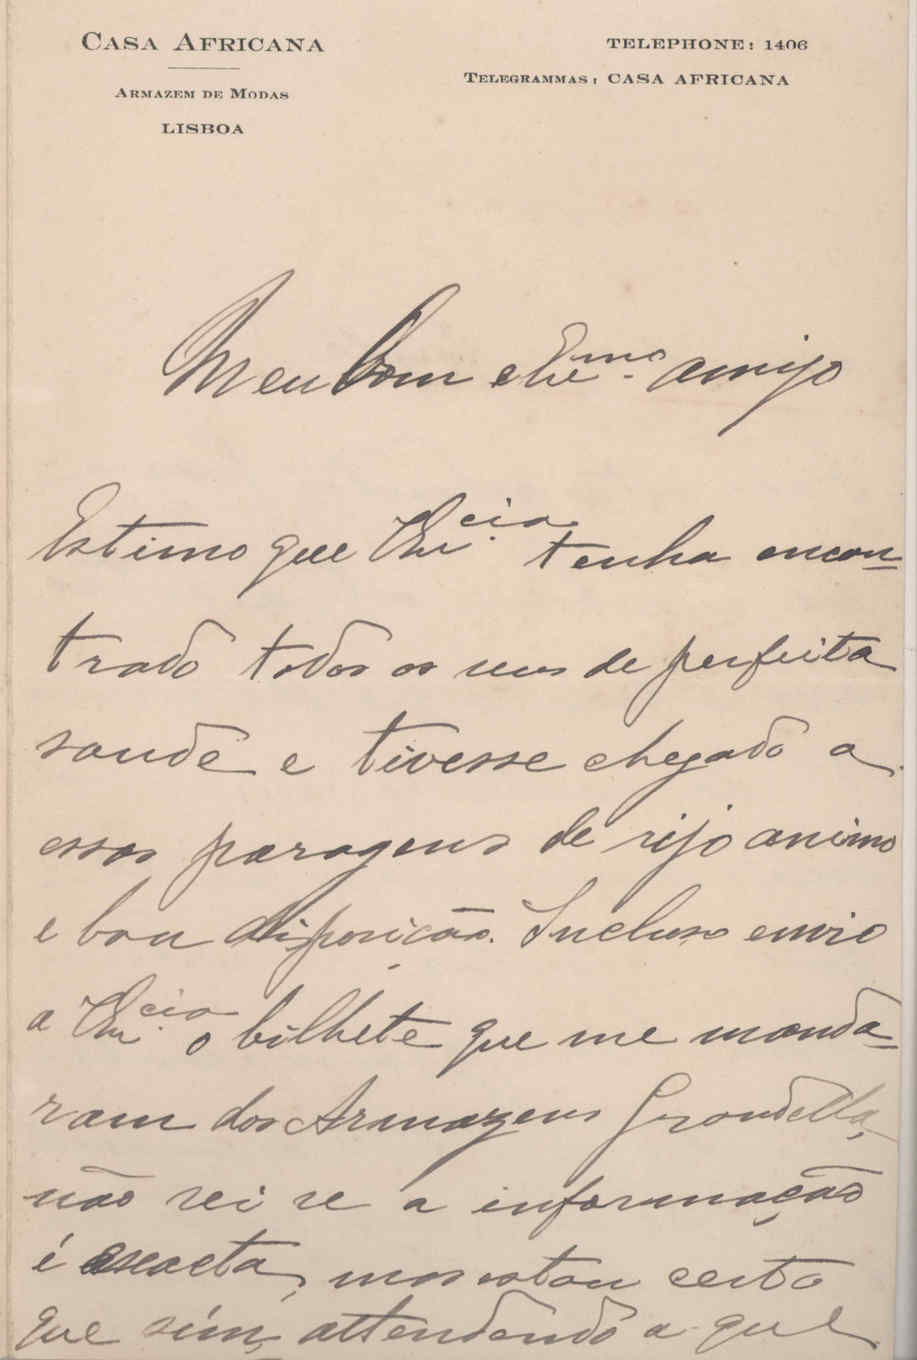 CASA AFRICANA
ARMAZEM DE MODAS
LISBOA
TELEPHONE: 1406
TELEGRAMMAS: CASA AFRICANA
Meu bom e Ex.mo amigo
Estimo que V. Ex.cia tenha encon-
trado todos os seus de perfeita
saude e tivesse chegado a
essas paragens de rijo animo
e boa disposicão. Incluso envio
a V. Ex.cia o bilhete que me manda-
ram dos Armazens Grandella,
não sei se a informação
é exacta, mas estou certo
que sim, attendendo a que